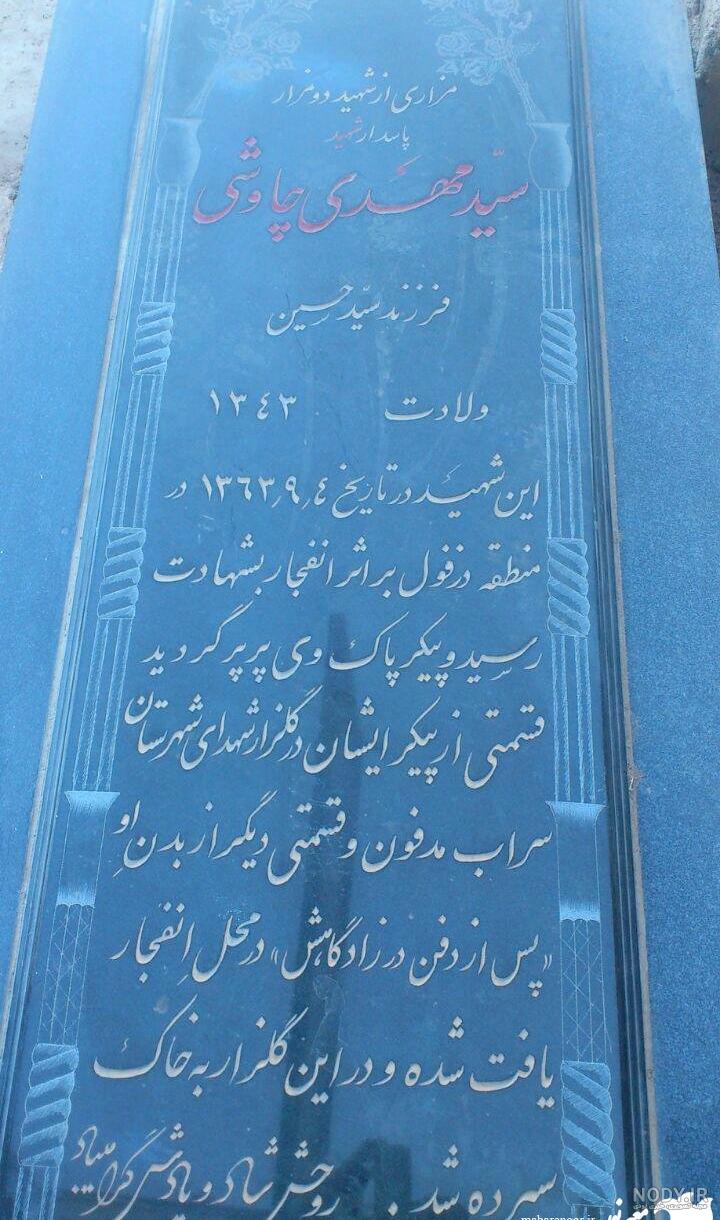 مزاری از شهید دو مزار
پاسدار شهید
سیّد مهدی چاوشی
فرزند سیّد حسین
ولادت ۱۳٤۳
این شهید در تاریخ ٤٫۹٫۱۳٦۳ در
منطقه دزفول بر اثر انفجار بشهادت
رسید و پیکر پاک وی پرپر گردید
قسمتی از پیکر ایشان در گلزار شهدای شهرستان
سراب مدفون و قسمتی دیگر از بدن او
«پس از دفن در زادگاهش» در محل انفجار
یافت شده و در این گلزار به خاک
سپرده شد. روحش شاد و یادش گرامیباد
NODY.IR